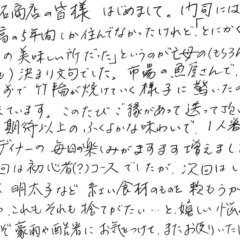 石商店の皆様 はじめまして。門司には
高の3年間しか住んでなかったけれど、とにかく
の美味しい所だった」というのが亡母の(もちろん
も)決まり文句でした。市場の魚屋さんで、
あで竹輪が焼けていく様子に驚いたの
ています。このたびご縁があって送って
期待以上のふくよかな味わいで、1人暮
ディナーの毎日の楽しみがますます増えまし
回は初心者(?)コースでしたが、次回はし
明太子など 紅い食材のものを 頼もうか
これもそれも捨てがたい…と嬉しい悩
ぞ豪雨や酷暑にお気をつけて、またお便りいた